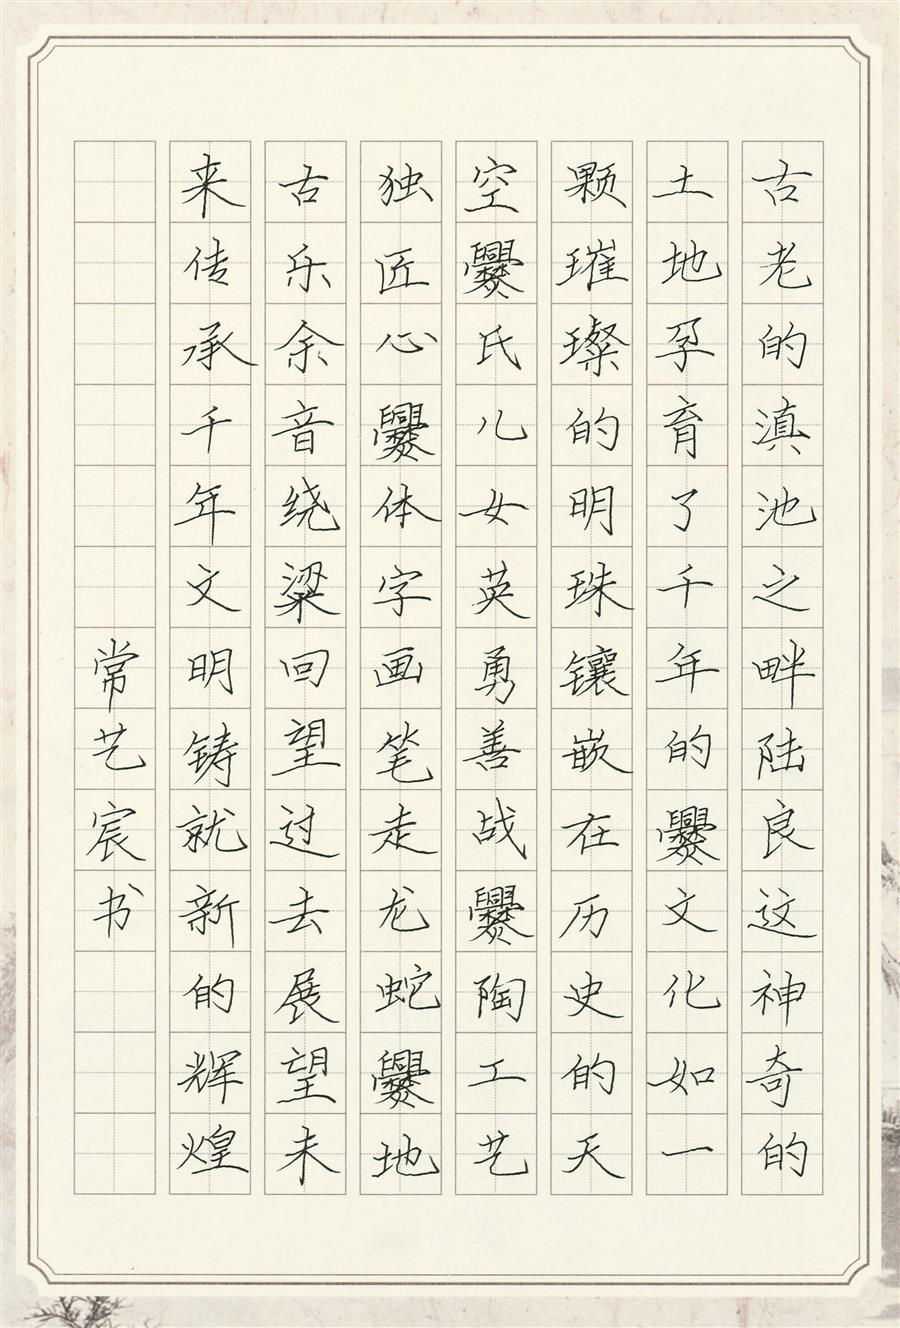 古老的滇池之畔陆良这神奇的
土地孕育了千年的爨文化如一
颗璀璨的明珠镶嵌在历史的天
空爨氏儿女英勇善战爨陶工艺
独匠心爨体字画笔走龙蛇爨地
古乐余音绕梁回望过去展望未
来传承千年文明铸就新的辉煌
常艺宸书